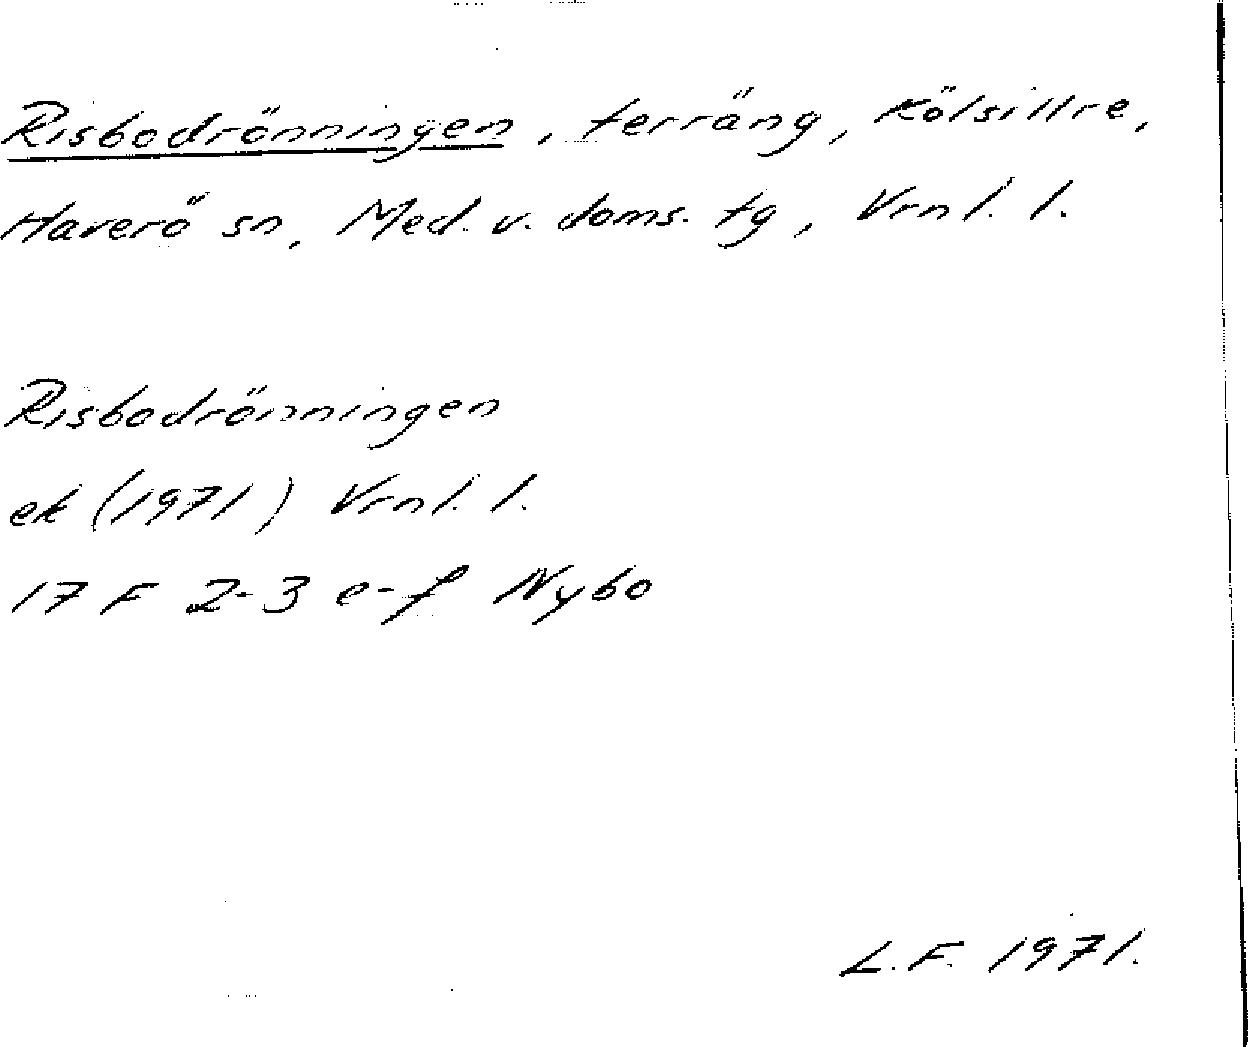 Risbodrönningen, terräng, Kölsillre,
Haverö sn, Med. v. doms. tg, Vrnl. l.
Risbodrönningen
ek (1971) Vrnl. l.
17 F 2-3 e-f Nybo
L.F. 1971.